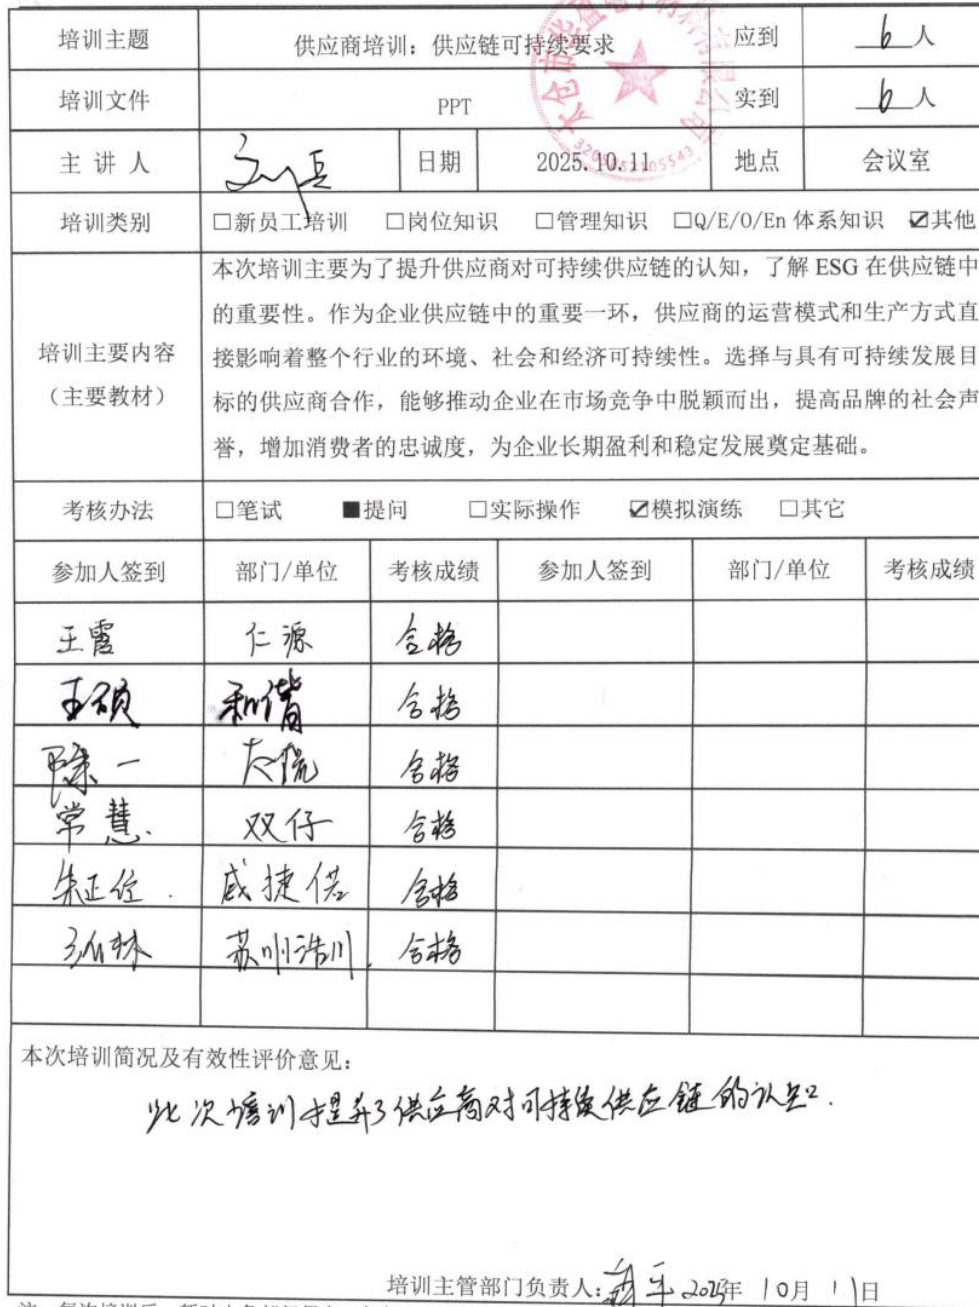 培训主题 供应商培训：供应链可持续要求 应到 6人
培训文件 PPT 实到 6人
主 讲 人 日期 2025.10.11 地点 会议室
培训类别 □新员工培训 □岗位知识 □管理知识 □Q/E/O/En 体系知识 ☑其他
本次培训主要为了提升供应商对可持续供应链的认知，了解 ESG 在供应链中
的重要性。作为企业供应链中的重要一环，供应商的运营模式和生产方式直
培训主要内容 接影响着整个行业的环境、社会和经济可持续性。选择与具有可持续发展目
（主要教材） 标的供应商合作，能够推动企业在市场竞争中脱颖而出，提高品牌的社会声
誉，增加消费者的忠诚度，为企业长期盈利和稳定发展奠定基础。
考核办法 □笔试 ■提问 □实际操作 ☑模拟演练 □其它
参加人签到 部门/单位 考核成绩 参加人签到 部门/单位 考核成绩
王霞 仁源 合格
王硕 和谐 合格
陈一 合格
常慧. 双仔 合格
朱正 威捷 合格
苏州浩川 合格
本次培训简况及有效性评价意见：
此次培训提升了供应商对可持续供应链的认知.
培训主管部门负责人： 2025年 10月 11日